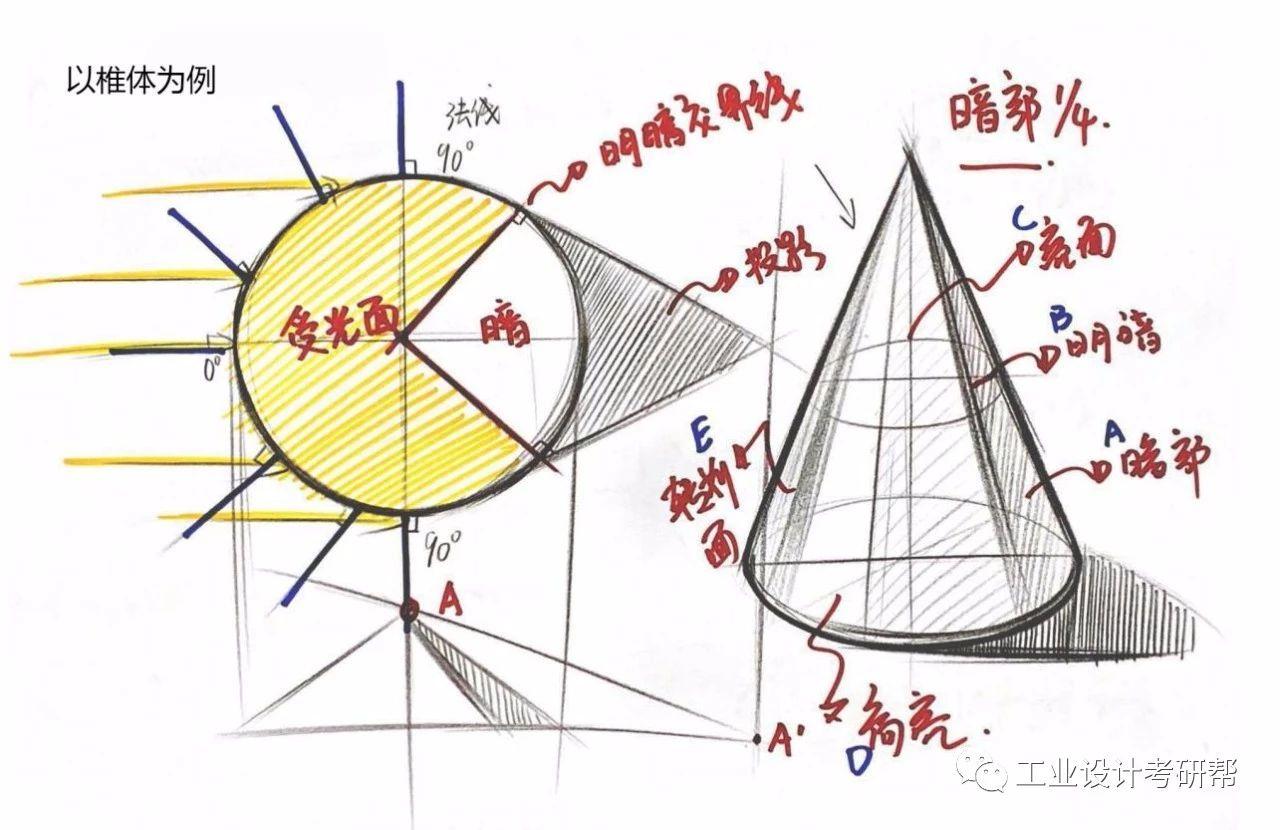 以椎体为例
法线
90°
明暗交界线
暗部 1/4.
C
亮面
投影
受光面
暗
B
明暗
0°
E
A
暗部
面
90°
A
A'
高亮.
D
工业设计考研帮